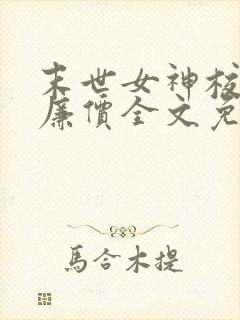 末世女神核
廉價全文免
馬合木提